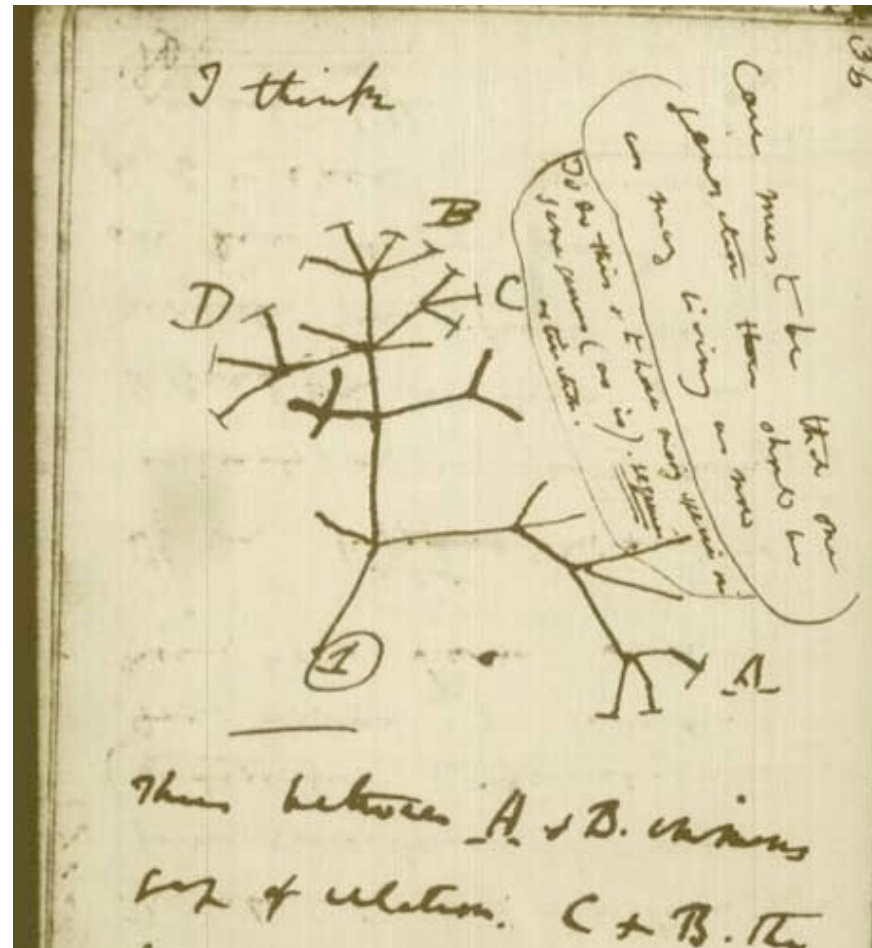 I think
36
Case must be that one
generation then should be
as many living as now
To do this & to have many species in
same genus (as is). requires
extinction.
B
C
D
A
1
Thus between A & B. immens
gap of relation. C & B. The